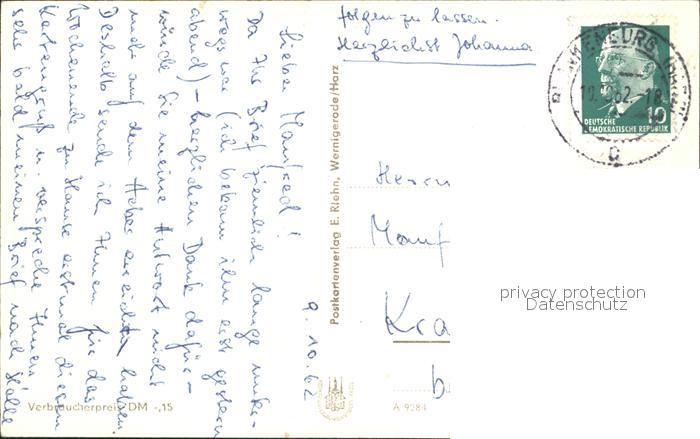 9. 10. 62
Lieber Manfred!
Da Ihr Brief ziemlich lange unter-
wegs war (ich bekam ihn erst gestern
abend) – herzlichen Dank dafür –
würde Sie meine Antwort nicht
mehr auf dem Heber erreicht haben.
Deshalb sende ich Ihnen für das
Wochenende zu Hause erstmal diesen
Kartengruß u. verspreche Ihnen
sehr bald meinen Brief nach Halle
folgen zu lassen.
Herzlichst Johanna
Postkartenverlag E. Riehn, Wernigerode/Harz
Verbraucherpreis DM -,15
A 9284
DEUTSCHE
DEMOKRATISCHE REPUBLIK
10
BLANKENBURG (HARZ)
10.10.62.-18
Herrn
Manf
Kra
b
privacy protection
Datenschutz